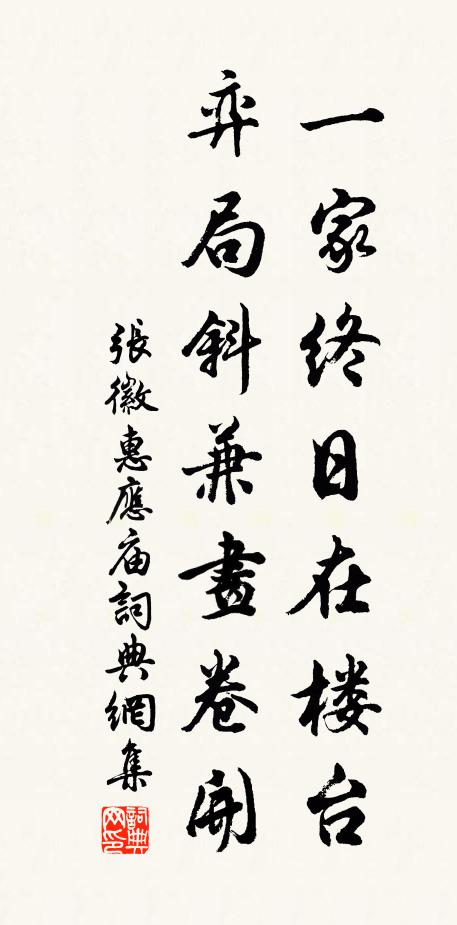 一家终日在楼台
弈局斜兼畫卷開
張徽惠應庙詞典網集
詞典网印